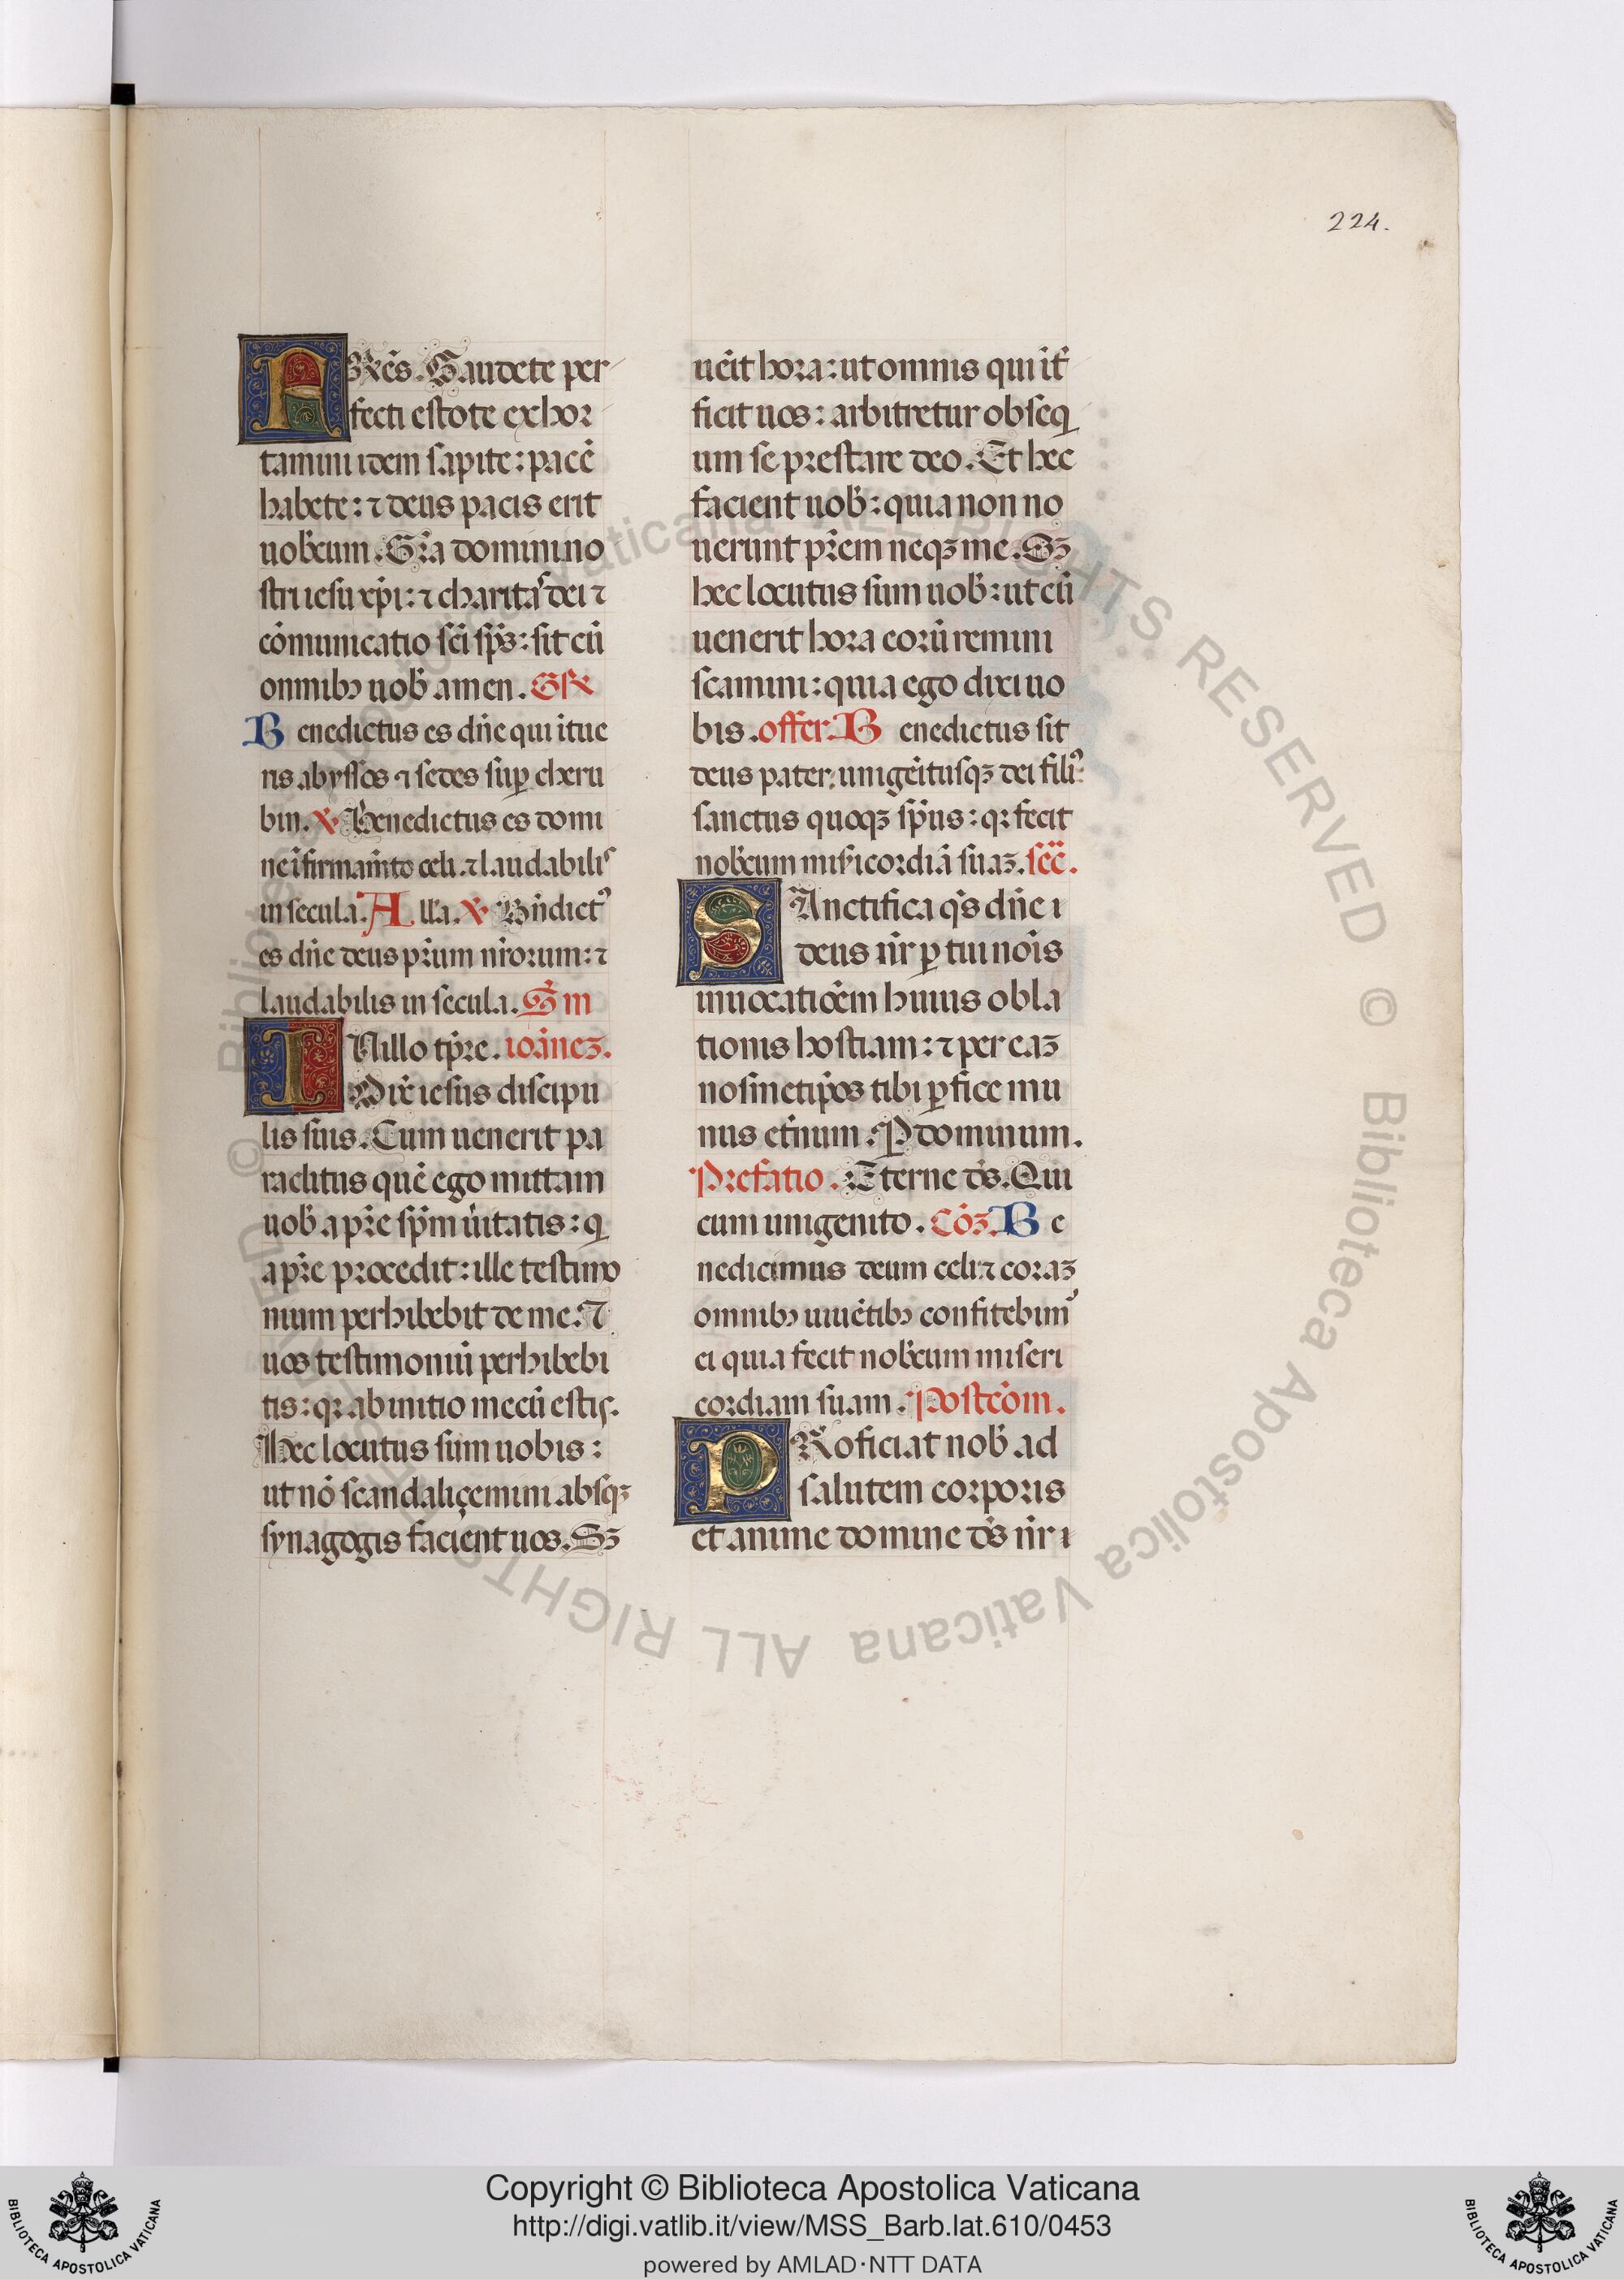 224.
Fres. Gaudete per
fecti estote exhor
tamini idem sapite: pacē
habete: ⁊ deus pacis erit
uob̄cum. Gr̄a domini no
stri iesu xp̄i: ⁊ charitas dei ⁊
cōmunicatio sc̄i sp̄s: sit cū
omnibꝯ uob̄ amen. Gr̄
Benedictus es dn̄e qui ītue
ris abyssos ⁊ sedes suꝑ cheru
bin. ℣ Benedictus es domi
ne ī firmam̄to celi. ⁊ laudabilis
in secula. All̄a. ℣ Bn̄dictꝰ
es dn̄e deus pr̄um nr̄orum: ⁊
laudabilis in secula. Sm̄
IN illo tp̄re. ioāneꝫ.
Dix̄ iesus discipu
lis suis. Cum uenerit pa
raclitus quē ego mittam
uob̄ a pr̄e sp̄m ūitatis: ꝗ
a pr̄e procedit: ille testimo
nium perhibebit de me. ⁊
uos testimoniū perhibebi
tis: qꝛ ab initio mecū estis.
Hec locutus sum uobis:
ut nō scandaliçemini absqꝫ
synagogis facient uos. Sꝫ
uēit hora: ut omnis qui īt̄
ficit uos: arbitretur obseq
um se prestare deo. Et hec
facient uob̄: quia non no
uerunt pr̄em neqꝫ me. Sꝫ
hec locutus sum uob̄: ut cū
uenerit hora eorū remini
scamini: quia ego dixi uo
bis. offer. Benedictus sit
deus pater: unigēitusqꝫ dei filiꝰ:
sanctus quoqꝫ sp̄us: qꝛ fecit
nob̄cum mis̄icordiā suaꝫ. sec̄.
SAnctifica qs̄ dn̄e
deus nr̄ ꝑ tui nōis
inuocatiōem huius obla
tionis hostiam: ⁊ per eaꝫ
nosmetip̄os tibi ꝑfice mu
nus et̄num. ꝑ dominum.
Prefatio. Eterne ds̄. Qui
cum unigenito. Cōꝫ. Be
nedicimus deum celi: ⁊ coraꝫ
omnibꝯ uiuētibꝯ confitebimꝰ
ei quia fecit nob̄cum miseri
cordiam suam. Postcōm.
PRoficiat nob̄ ad
salutem corporis
et anime domine ds̄ nr̄
© Biblioteca Apostolica Vaticana ALL RIGHTS RESERVED
Copyright © Biblioteca Apostolica Vaticana
http://digi.vatlib.it/view/MSS_Barb.lat.610/0453
powered by AMLAD·NTT DATA
BIBLIOTECA APOSTOLICA VATICANA
BIBLIOTECA APOSTOLICA VATICANA